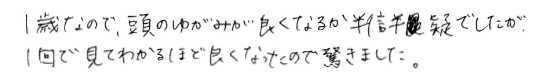 1歳なので、頭のゆがみが良くなるか半信半疑でしたが、
1回で見てわかるほど良くなったので驚きました。